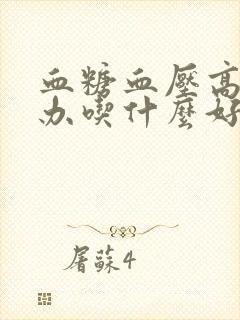 血糖血壓高
办喫什麽好
屠蘇4